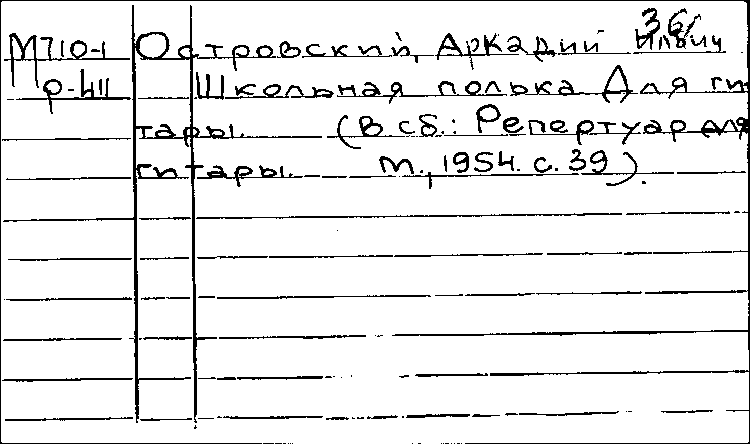 36/
М710-1 Островский, Аркадий Ильич
р-411 Школьная полька Для ги
тары. (В сб.: Репертуар для
гитары. М., 1954. с. 39).